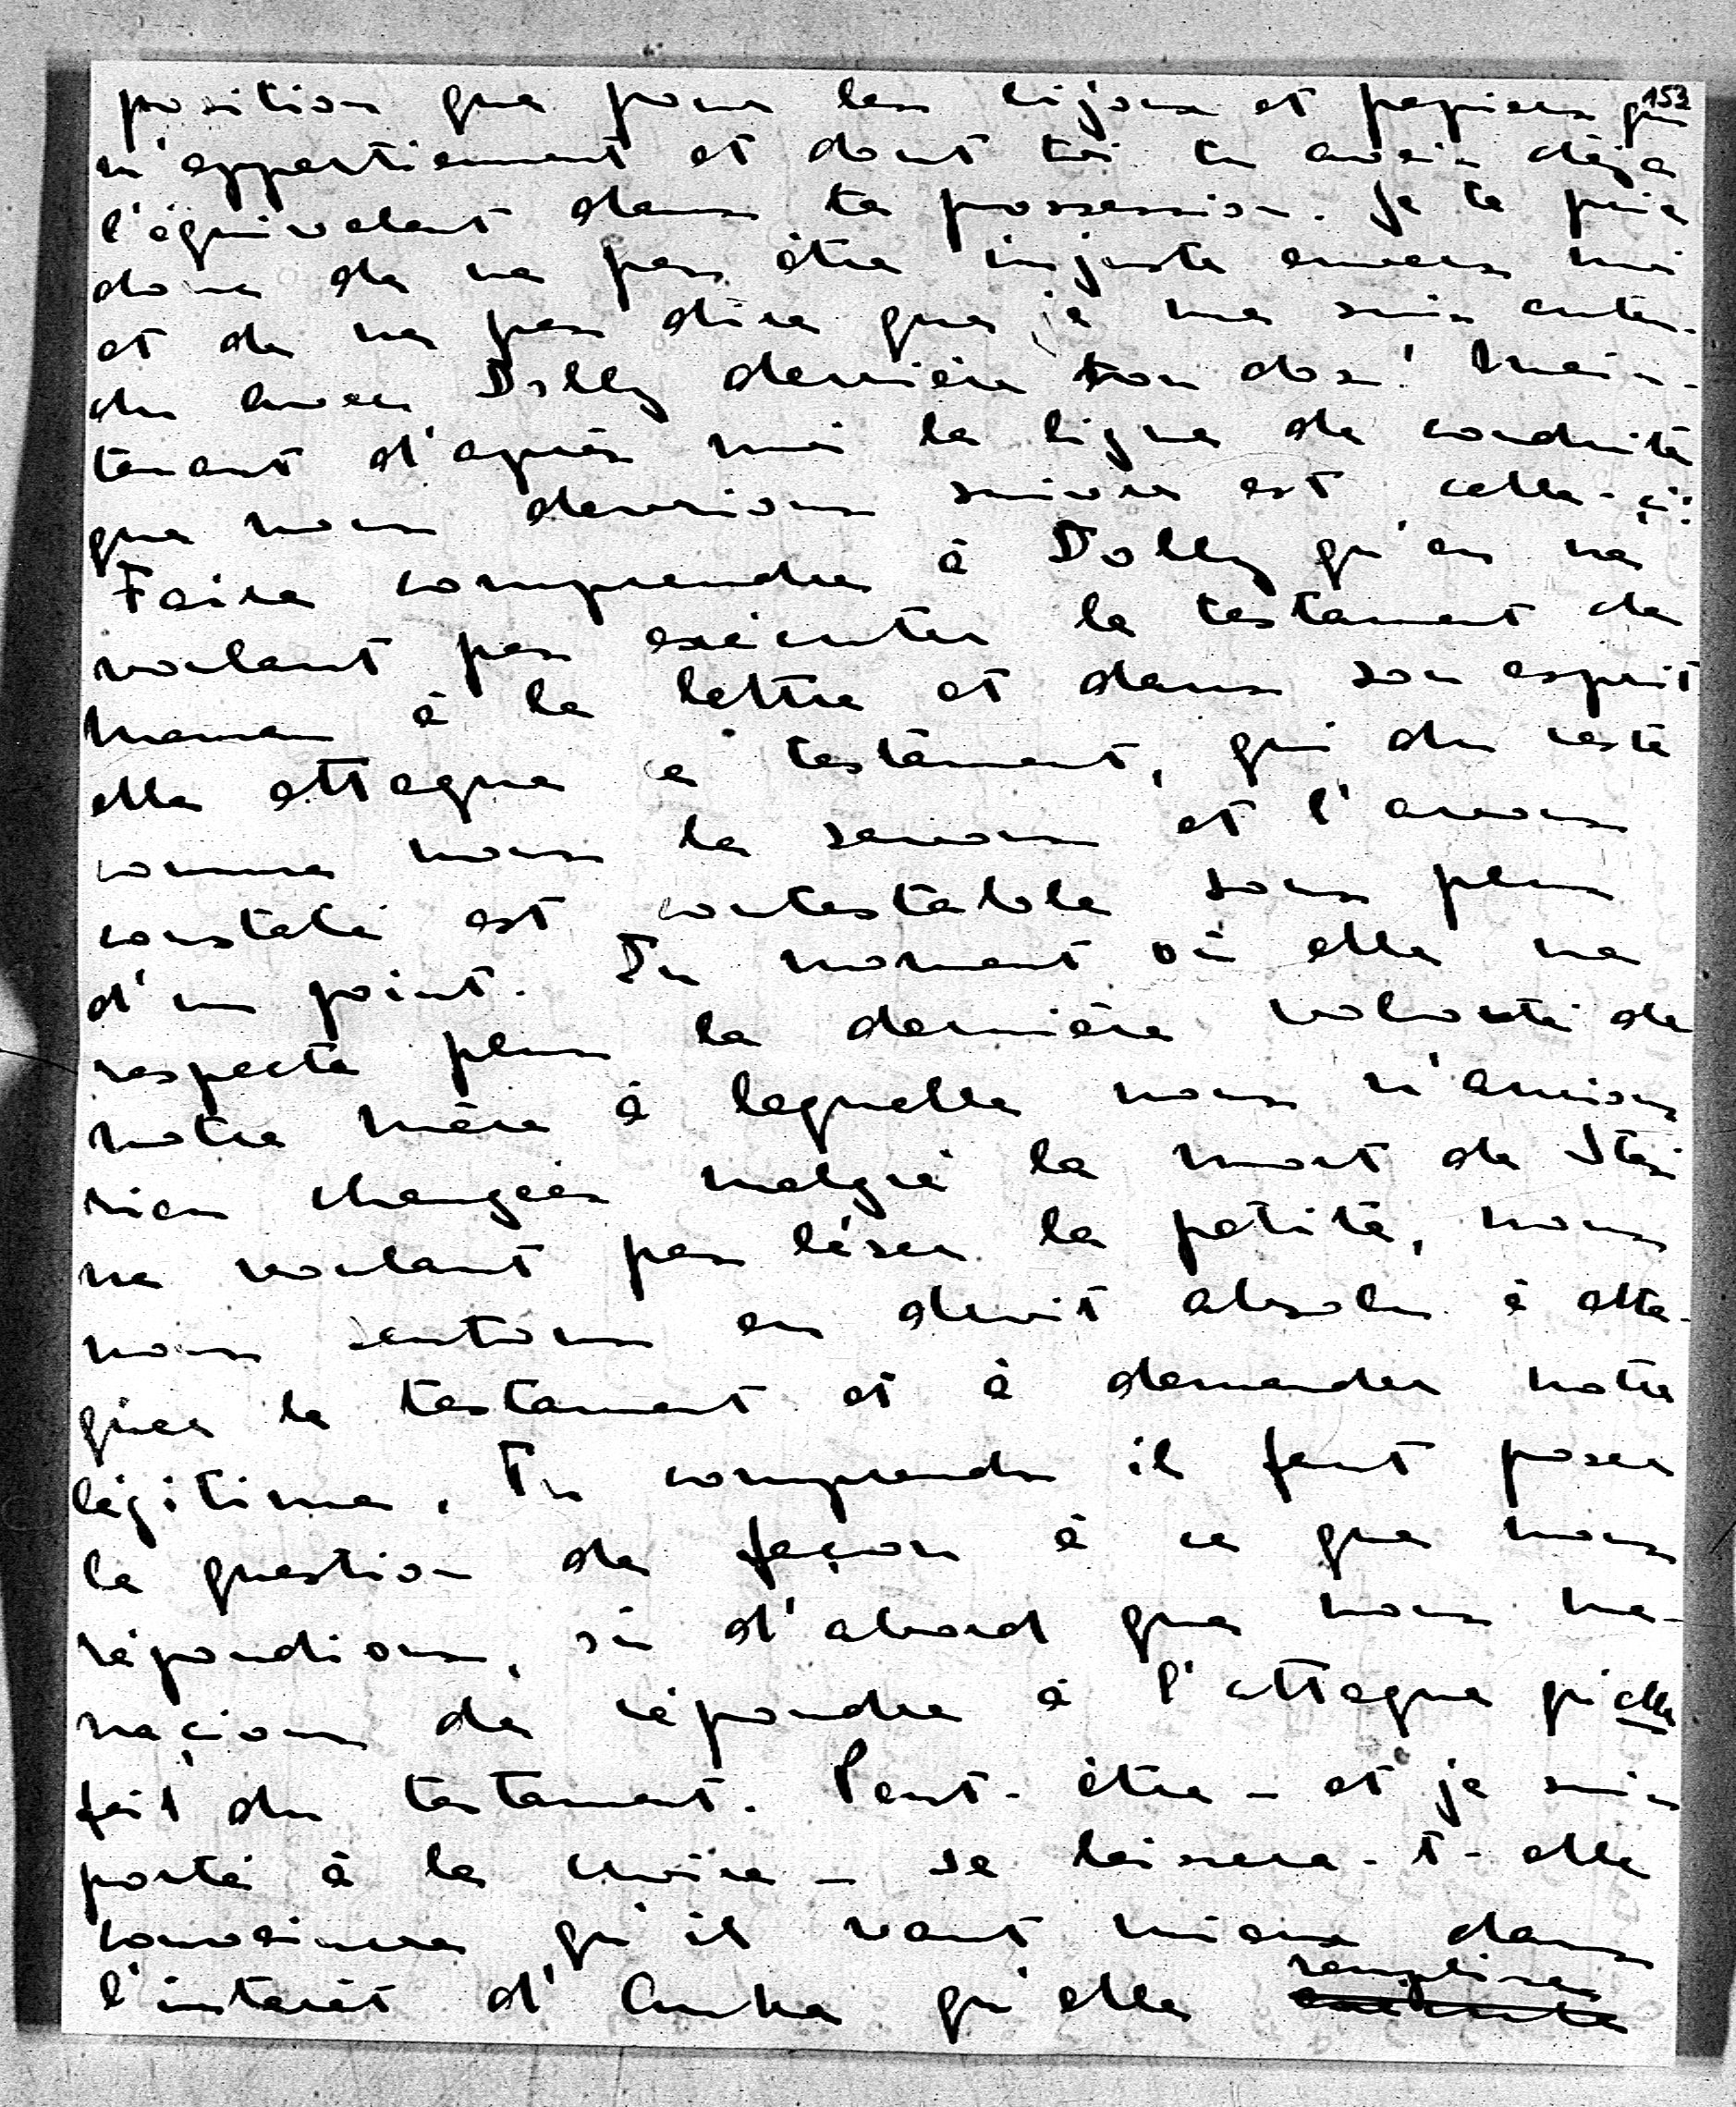 153
position que pour les bijoux et papiers qui
m'appartiennent et dont toi tu avais déjà
l'équivalent dans ta possession. Je te prie
donc de ne pas être injuste envers moi
et de ne pas dire que je me suis enten-
du avec Dolly derrière ton dos! Main-
tenant d'après moi la ligne de conduite
que nous devrions suivre est celle-ci:
Faire comprendre à Dolly qu'en ne
voulant pas exécuter le testament de
maman à la lettre et dans son esprit
elle attaque ce testament, qui du reste
comme nous le savons et l'avons
constaté est contestable sous plus
d'un point. Du moment où elle ne
respecte plus la dernière volonté de
notre mère à laquelle nous n'avions
rien changés malgré la mort de
ne voulant pas léser la petite, nous
nous sentons en droit absolu à atta-
quer le testament et à demander notre
légitime. Tu comprends il faut poser
la question de façon à ce que nous
répondions, si d'abord que nous me-
naçions de répondre à l'attaque qu'elle
fait du testament. Peut-être - et je suis
porté à le croire - se laissera-t-elle
convaincre qu'il vaut mieux dans
l'intérêt d' qu'elle remplisse